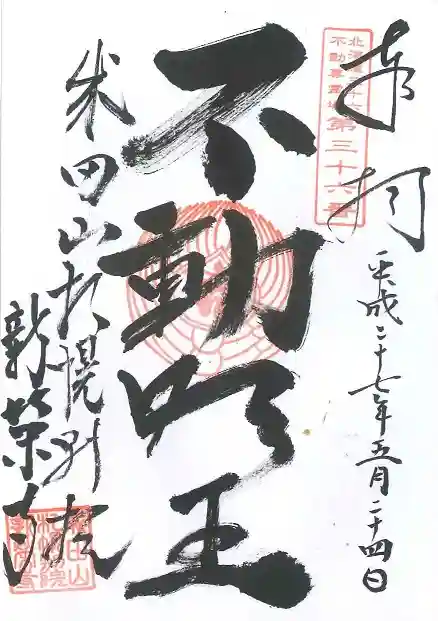 奉打
北海道三十六
不動尊霊場
第三十六番
平成二十七年五月二十四日
不動明王
成田山札幌別院
新栄寺